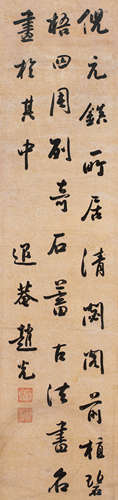 倪元鎮所居清閟閣前植碧
梧四周列奇石蓄古法書名
畫於其中
退菴趙光